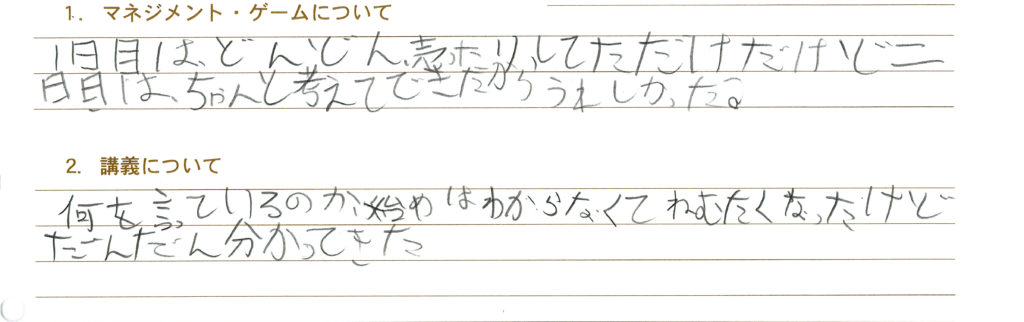 1. マネジメント・ゲームについて
1日目は、どんどん、売ったりしてただけだけど二
日目は、ちゃんと考えてできたからうれしかった。
2. 講義について
何を言っているのか、始めはわからなくてねむたくなったけど
だんだん分かってきた